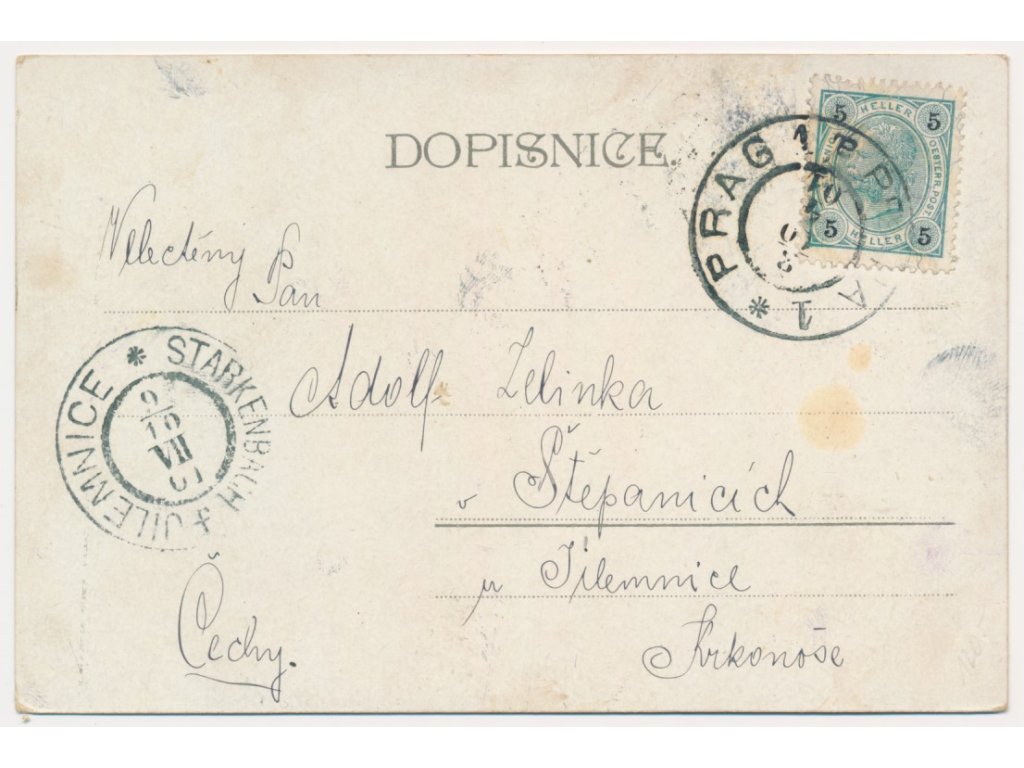 DOPISNICE.
5 HELLER 5
OESTERR. POST
5 HELLER 5
PRAG 1 PRAHA 1 *
Velectěný
Pan
Adolf Zelinka
v Štěpanicích
u Jilemnice
Krkonoše
Čechy.
* STARKENBACH * JILEMNICE
9/10
VII
01